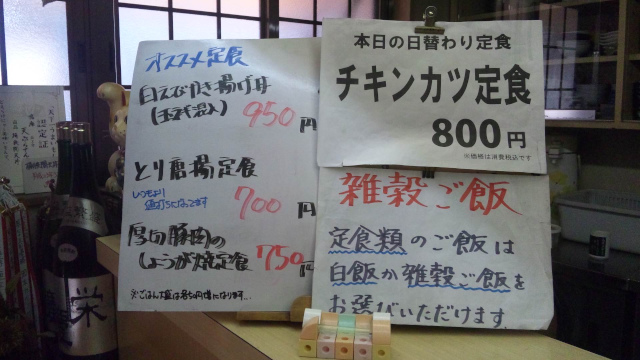 オススメ定食
白えびかき揚げ丼
(玉子入)
950円
とり唐揚定食
いつもより
700円
厚切豚肉の
しょうが焼定食
750円
本日の日替わり定食
チキンカツ定食
800円
※価格は消費税込です
雑穀ご飯
定食類のご飯は
白飯か雑穀ご飯を
お選びいただけます
認定証
栄